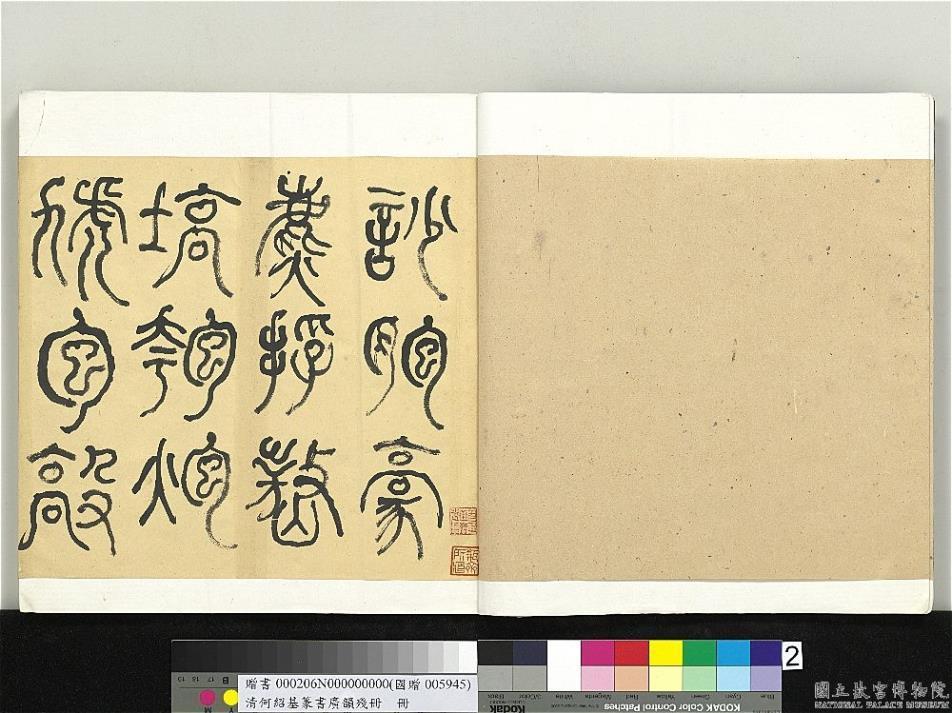 訬胞豪
麃捊嶅
塙匏炮
號包毃
贈書 000206N000000000(國贈 005945)
清何紹基篆書廣韻殘冊 冊
2
Kodak
KODAK Color Control Patches
Blue Cyan Green Yellow Red Magenta White 3/Color Black
國立故宮博物院
NATIONAL PALACE MUSEUM